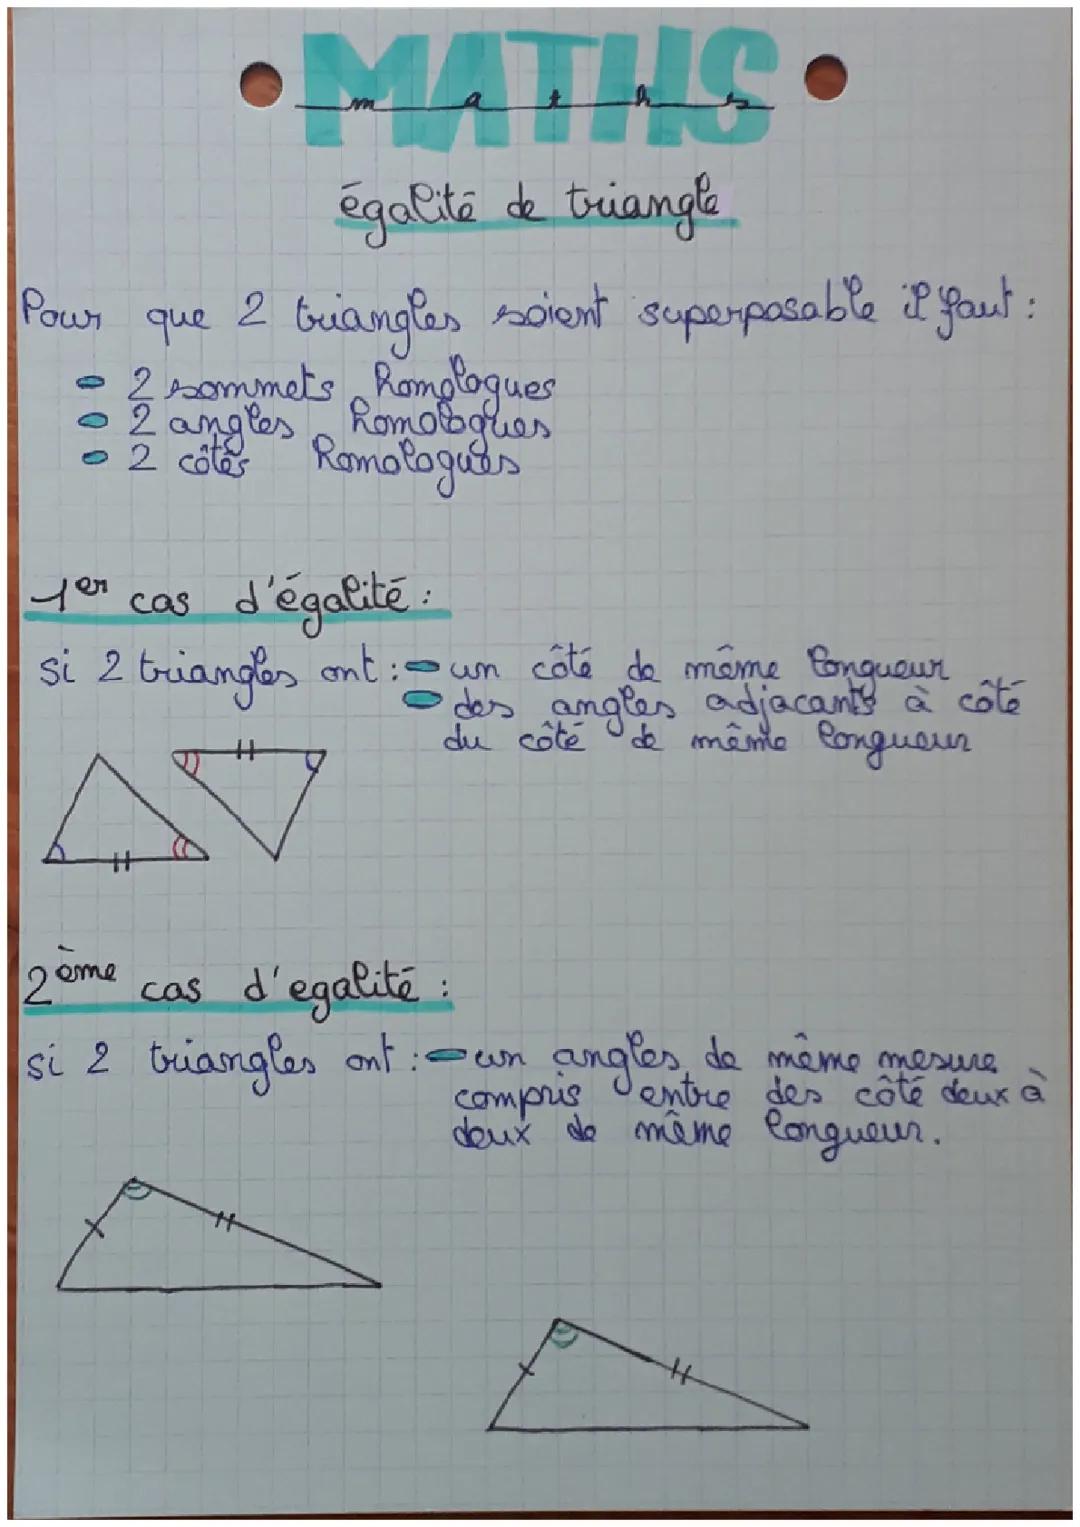 MATHS
m a t h s
égalité de triangle
Pour que 2 triangles soient superposable il faut :
- 2 sommets homologues
- 2 angles homologues
- 2 côtés homologues
1er cas d'égalité :
si 2 triangles ont : - un côté de même longueur
- des angles adjacants à côté
du côté de même longueur
2ème cas d'egalité :
si 2 triangles ont : - un angles de même mesure
compris entre des côté deux à
deux de même longueur.